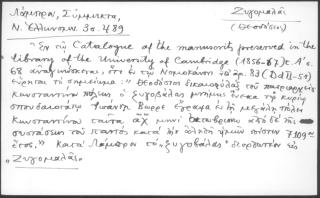 Λάμπρου, Σύμμικτα,
Ν. Ἑλληνομν. 3ος 489
Ζυγομαλᾶς
(Θεοδόσιος)
"Ἐν τῷ Catalogue of the manuscripts preserved in the
library of the University of Cambridge (1856-67) τ. Α' σ.
68 ἀναγινώσκεται, ὅτι ἐν τῷ Νομοκάνονι ὑπ' ἀρ. 83 (Dd II-51)
εὕρηται τὸ σημείωμα: "Θεοδόσιος δικαιοφύλαξ τοῦ πατριαρχείου
Κωνσταντίνου πόλεως ὁ Ζυγοβάλας μνήμης ἕνεκα τῷ κυρίῳ
σπουδαιοτάτῳ ἔγραψα ἐν τῇ μεγάλῃ πόλει
Κωνσταντίνου ταῦτα μηνὶ ὀκτωβρίῳ ἀπὸ δὲ τῆς
συστάσεως τοῦ παντὸς κατὰ τὴν ἡμῶν πίστιν 7109ον
ἔτος." Κατὰ Λάμπρον τὸ "Ζυγοβάλας" διορθωτέον εἰς
"Ζυγομαλᾶς"